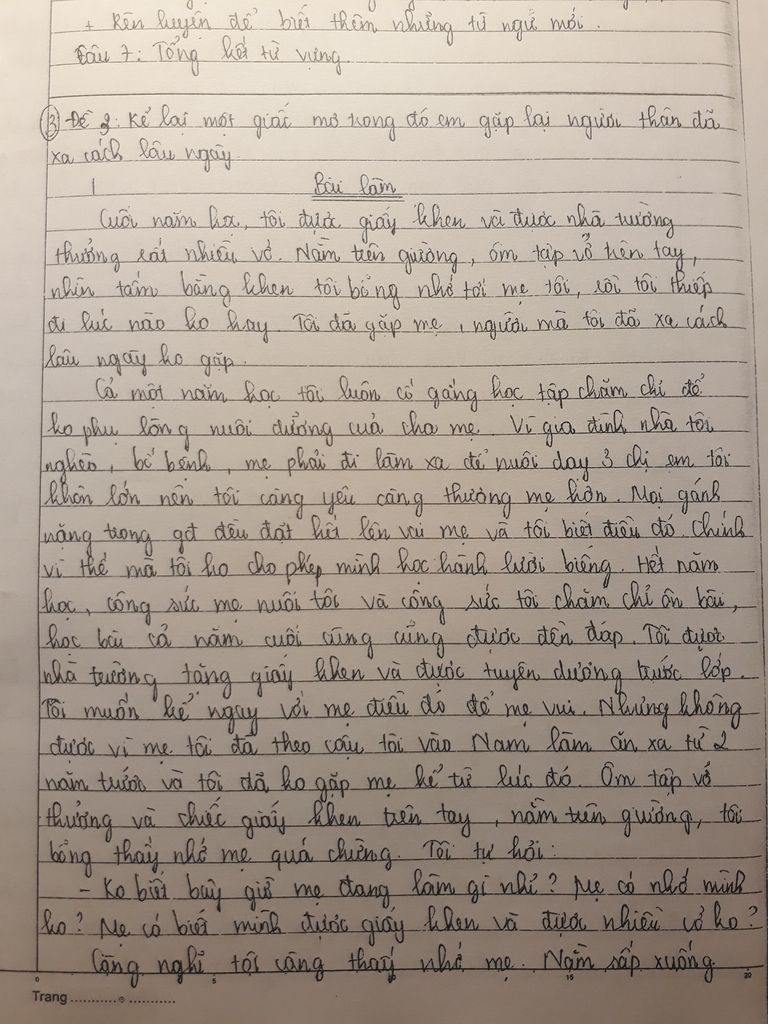 + Rèn luyện để biết thêm những từ ngữ mới.
Câu 7: Tổng kết từ vựng.
③ Đề 2: Kể lại một giấc mơ trong đó em gặp lại người thân đã
xa cách lâu ngày.
Bài làm
Cuối năm học, tôi được giấy khen và được nhà trường
thưởng rất nhiều vở. Nằm trên giường, ôm tập vở trên tay,
nhìn tấm bằng khen tôi bỗng nhớ tới mẹ tôi, rồi tôi thiếp
đi lúc nào ko hay. Tôi đã gặp mẹ, người mà tôi đã xa cách
lâu ngày ko gặp.
Cả một năm học tôi luôn cố gắng học tập chăm chỉ để
ko phụ lòng nuôi dưỡng của cha mẹ. Vì gia đình nhà tôi
nghèo, bố bệnh, mẹ phải đi làm xa để nuôi dạy 3 chị em tôi
khôn lớn nên tôi càng yêu càng thương mẹ hơn. Mọi gánh
nặng trong gđ đều đặt hết lên vai mẹ và tôi biết điều đó. Chính
vì thế mà tôi ko cho phép mình học hành lười biếng. Hết năm
học, công sức mẹ nuôi tôi và công sức tôi chăm chỉ ôn bài,
học bài cả năm cuối cùng cũng được đền đáp. Tôi được
nhà trường tặng giấy khen và được tuyên dương trước lớp.
Tôi muốn kể ngay với mẹ điều đó để mẹ vui. Nhưng không
được vì mẹ tôi đã theo cậu tôi vào Nam làm ăn xa từ 2
năm trước và tôi đã ko gặp mẹ kể từ lúc đó. Ôm tập vở
thưởng và chiếc giấy khen trên tay, nằm trên giường, tôi
bỗng thấy nhớ mẹ quá chừng. Tôi tự hỏi:
- Ko biết bây giờ mẹ đang làm gì nhỉ? Mẹ có nhớ mình
ko? Mẹ có biết mình được giấy khen và được nhiều vở ko?
Càng nghĩ tôi càng thấy nhớ mẹ. Nằm sấp xuống
0 5 10 15 20
Trang ...........⊙ ...........